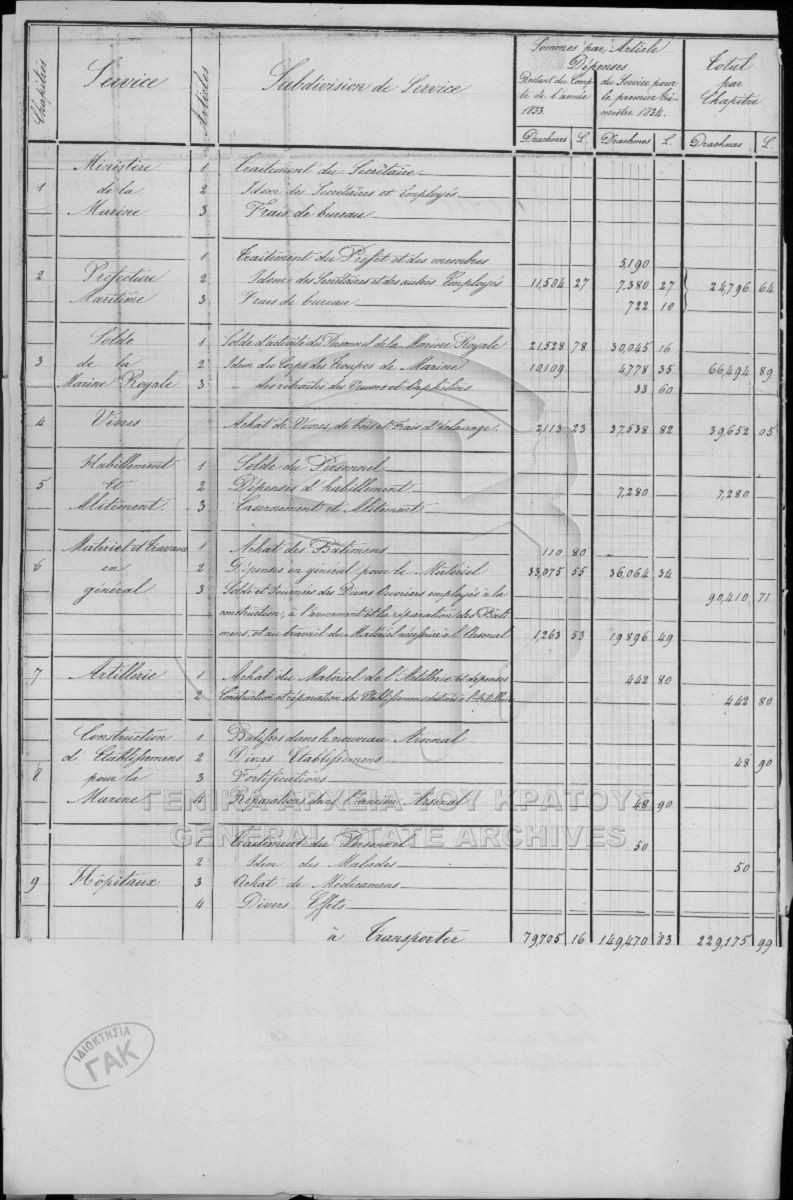 Chapitres
Service
Articles
Subdivision de Service
Sommes par Article
Dépenses
Restant du Compte de l'année 1833.
du Service pour le premier Trimestre 1834.
Total par Chapitre
Drachmes L. Drachmes L. Drachmes L.
1 Ministère de la Marine
1 Traitement du Secrétaire
2 Idem des Secrétaires et Employés
3 Frais de bureau
2 Préfecture Maritime
1 Traitement du Préfet et des membres 5,190
2 Idem des Secrétaires et des autres Employés 11,504 27 7,380 27 24,796 64
3 Frais de bureau 722 10
3 Solde de la Marine Royale
1 Solde d'activité du Personnel de la Marine Royale 21,528 78 30,045 16
2 Idem du Corps des Troupes de Marine 10,109 4,778 35 66,494 89
3 — des retraités des Veuves et Orphelins 33 60
4 Vivres
Achat de Vivres de bois et Frais d'éclairage. 2,113 23 37,538 82 39,652 05
5 Habillement et Alitement.
1 Solde du Personnel
2 Dépenses d'habillement 7,280 7,280
3 Casernement et Alitement
6 Matériel et Travaux en général
1 Achat des Bâtimens 110 80
2 Dépenses en général pour le Matériel 33,075 55 36,064 34
3 Solde et Journées des Divers Ouvriers employés à la 90,410 71
construction, à l'armement et la réparation des Bâti
mens, et au travail du Matériel nécessaire à l'Arsenal 1,263 53 19,896 49
7 Artillerie
1 Achat du Matériel de l'Artillerie et dépenses 442 80
2 Construction et réparation des Etablissemens destinés à l'Artillerie 442 80
8 Construction d'Etablissemens pour la Marine
1 Batisses dans le nouveau Arsenal
2 Divers Etablissemens 48 90
3 Fortifications
4 Réparations dans l'ancien Arsenal 48 90
9 Hôpitaux
1 Traitement du Personnel 50
2 Idem des Malades 50
3 Achat de Médicamens
4 Divers Effets
à Transporter 79,705 16 149,470 83 229,175 99
ΓΕΝΙΚΑ ΑΡΧΕΙΑ ΤΟΥ ΚΡΑΤΟΥΣ
GENERAL STATE ARCHIVES
ΙΔΙΟΚΤΗΣΙΑ
ΓΑΚ